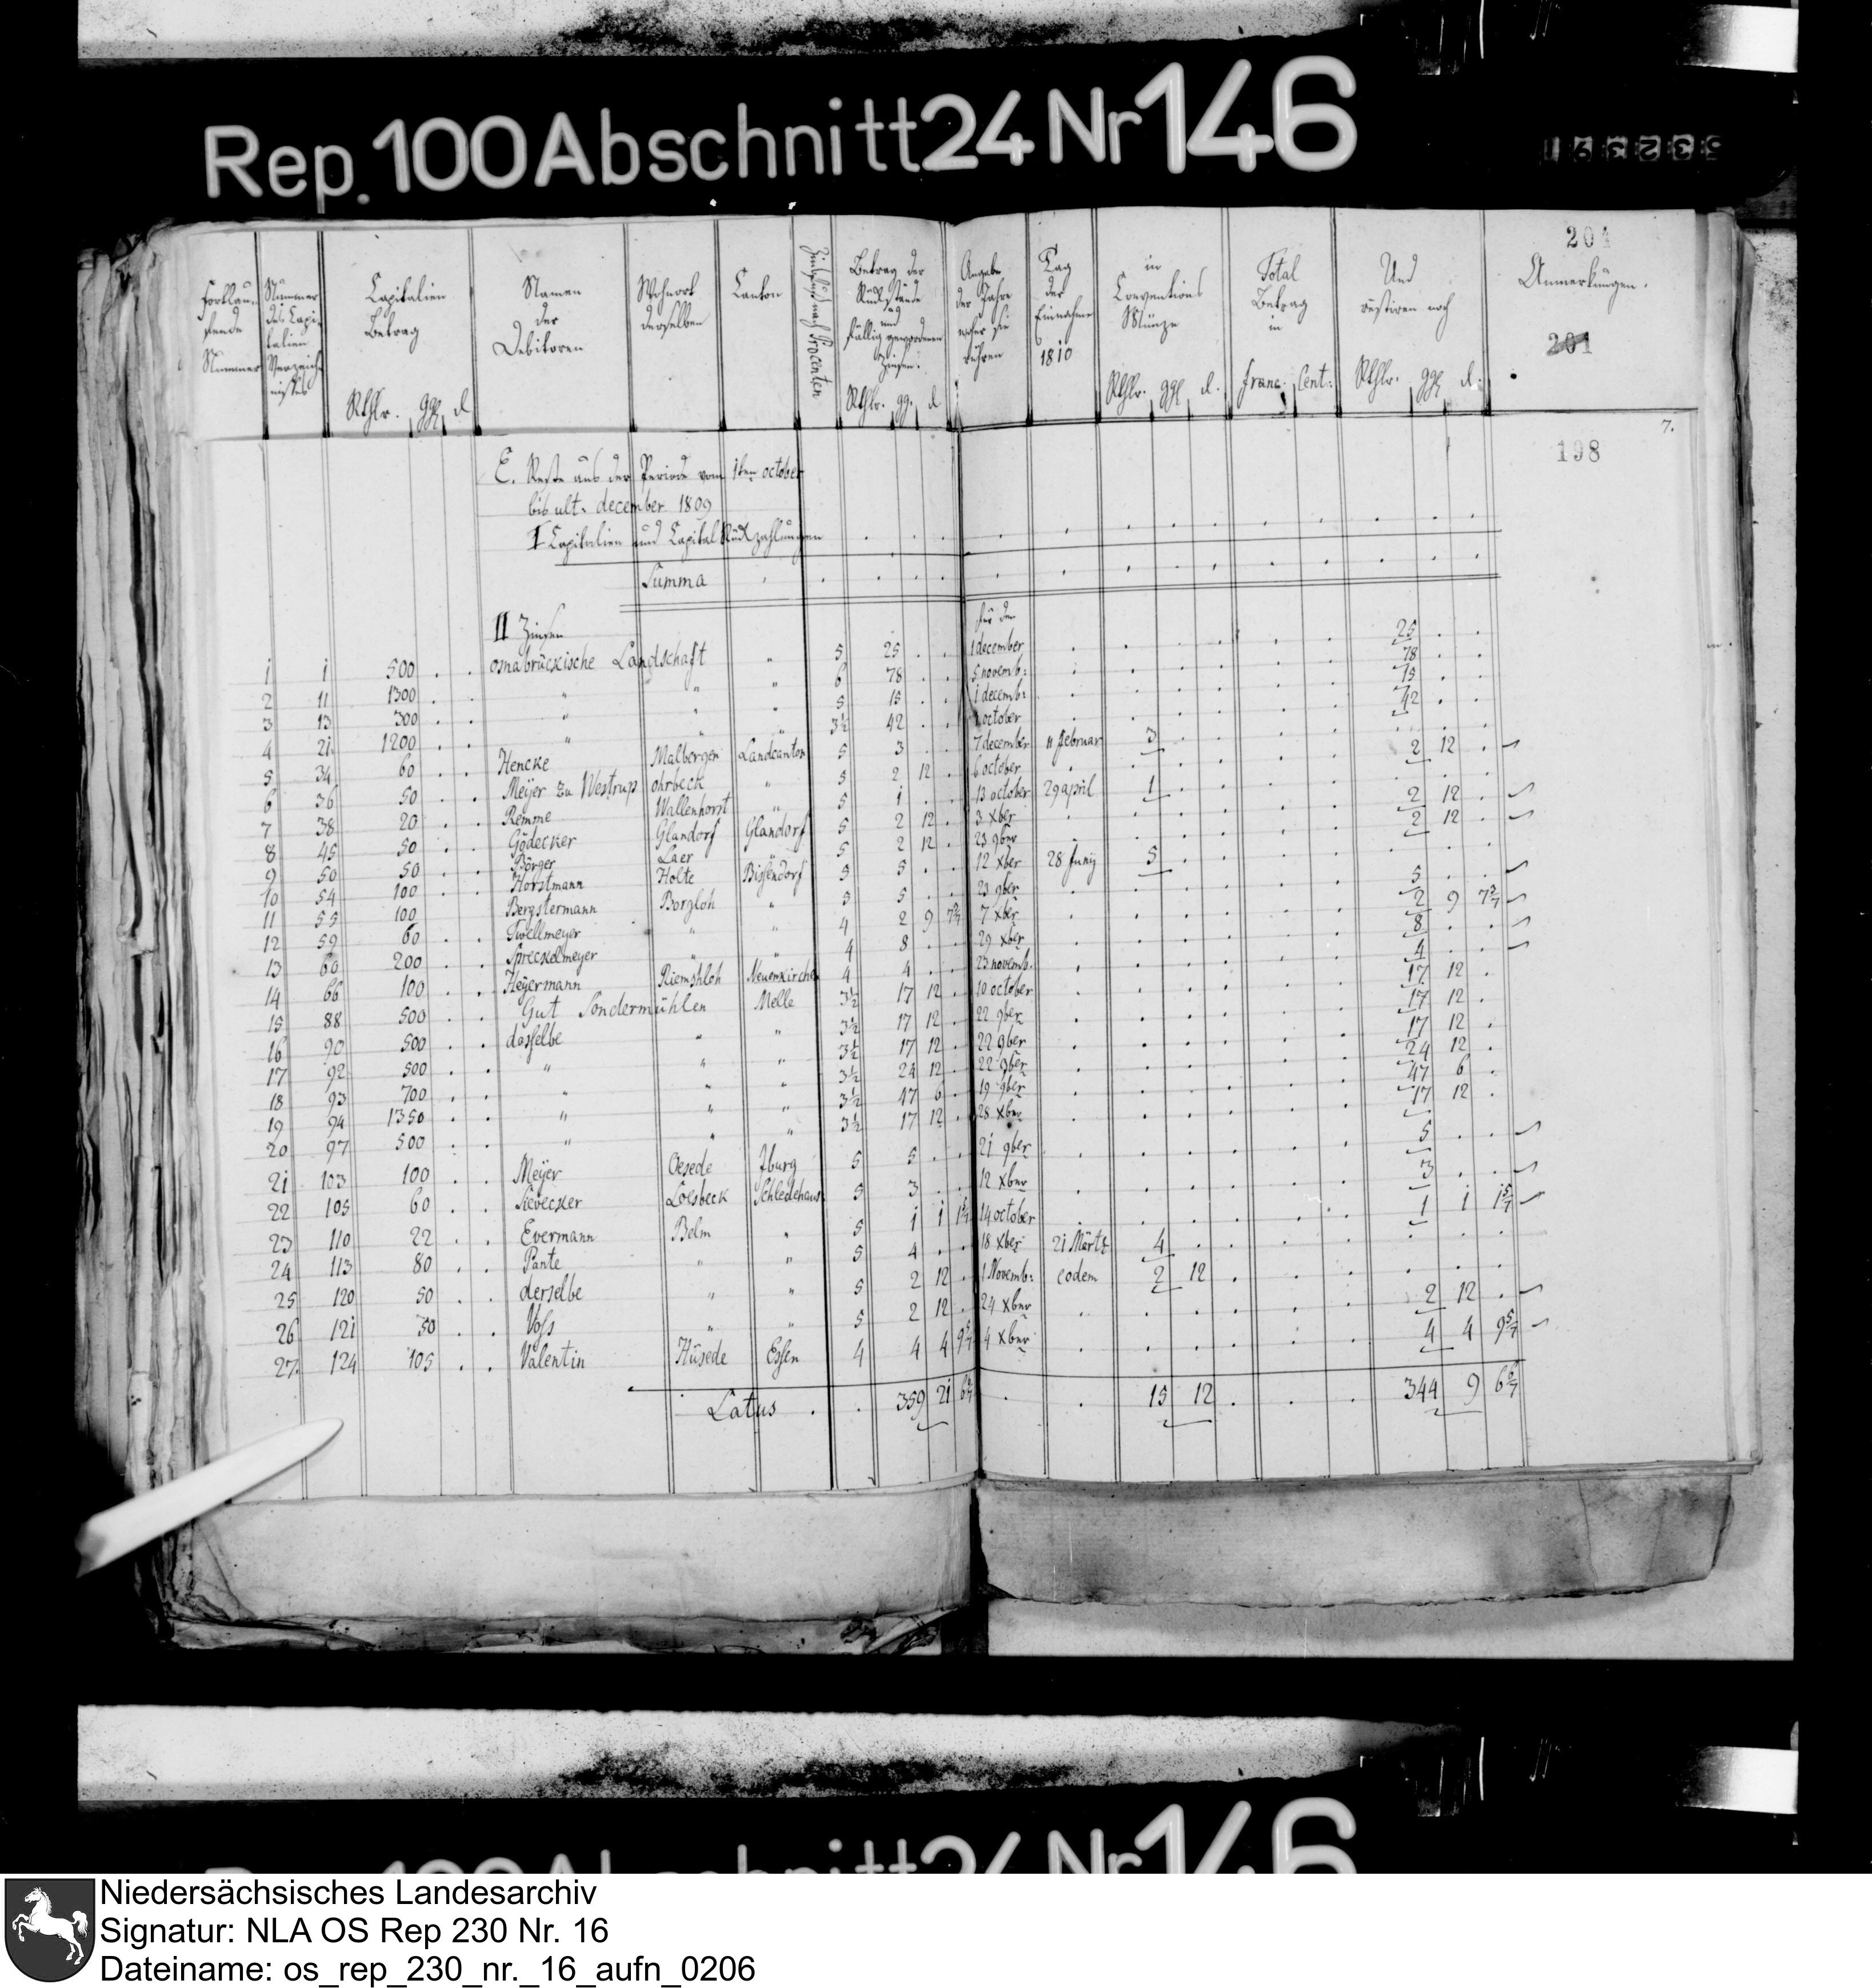 Rep. 100 Abschnitt 24 Nr 146
204
Fortlau- fende Nummer | Nummer des Capi- talien Verzeich- nisses | Capitalien Betrag Rthlr. ggl d | Namen der Debitoren | Wohnort derselben | Canton | Zinsfuß nach Procenten | Betrag der Rückstände und fällig gewordenen Zinsen. Rthlr. gg. d | Angabe der Jahre woher sie rühren | Tag der Einnahme 1810 | in Conventions Münze Rthlr. ggl d. | Total Betrag in franc. Cent: | Und restiren noch Rthlr. ggl d. | Anmerkungen.
201
7.
198
E. Reste aus der Periode vom 1ten october
bis ult. december 1809
I Capitalien und Capital Rückzahlungen
Summa
II Zinsen | für den
1 | 1 | 500 . . | osnabrückische Landschaft | " | 5 | 25 . . | 1 december | . | . . . | . . | 25 . .
2 | 11 | 1300 . . | " | " | " | 6 | 78 . . | 5 novemb: | . | . . . | . . | 78 . .
3 | 13 | 300 . . | " | " | " | 5 | 15 . . | 1 decemb: | . | . . . | . . | 15 . .
4 | 21 | 1200 . . | " | " | " | 3½ | 42 . . | october | . | . . . | . . | 42 . .
5 | 34 | 60 . . | Hencke | Malbergen | Landcanton | 5 | 3 . . | 7 december | 11 februar | 3 . . | . . | . . .
6 | 36 | 50 . . | Meÿer zu Westrup | ohrbeck | " | 5 | 2 12 . | 6 october | . | . . . | . . | 2 12 .
7 | 38 | 20 . . | Remme | Wallenhorst | " | 5 | 1 . . | 13 october | 29 april | 1 . . | . . | . . .
8 | 45 | 50 . . | Gödecker | Glandorf | Glandorf | 5 | 2 12 . | 3 xber | . | . . . | . . | 2 12 .
9 | 50 | 50 . . | Börger | Laer | " | 5 | 2 12 . | 23 9ber | . | . . . | . . | 2 12 .
10 | 54 | 100 . . | Horstmann | Holte | Bissendorf | 5 | 5 . . | 12 xber | 28 Junÿ | 5 . . | . . | . . .
11 | 55 | 100 . . | Bergstermann | Borgloh | " | 5 | 5 . . | 23 9ber | . | . . . | . . | 5 . .
12 | 59 | 60 . . | Twellmeyer | " | " | 4 | 2 9 7 2/7 | 7 xber | . | . . . | . . | 2 9 7 2/7
13 | 60 | 200 . . | Spreckelmeyer | " | " | 4 | 8 . . | 29 xber | . | . . . | . . | 8 . .
14 | 66 | 100 . . | Heÿermann | Riemshloh | Neuenkirchen | 4 | 4 . . | 23 novemb. | . | . . . | . . | 4 . .
15 | 88 | 500 . . | Gut Sondermühlen | Melle | 3½ | 17 12 . | 10 october | . | . . . | . . | 17 12 .
16 | 90 | 500 . . | dasselbe | " | " | 3½ | 17 12 . | 22 9ber | . | . . . | . . | 17 12 .
17 | 92 | 500 . . | " | " | " | 3½ | 17 12 . | 22 9ber | . | . . . | . . | 17 12 .
18 | 93 | 700 . . | " | " | " | 3½ | 24 12 . | 22 9ber | . | . . . | . . | 24 12 .
19 | 94 | 1350 . . | " | " | " | 3½ | 47 6 . | 19 9ber | . | . . . | . . | 47 6 .
20 | 97 | 500 . . | " | " | " | 3½ | 17 12 . | 28 xber | . | . . . | . . | 17 12 .
21 | 103 | 100 . . | Meÿer | Oesede | Iburg | 5 | 5 . . | 21 9ber | . | . . . | . . | 5 . .
22 | 105 | 60 . . | Sievecker | Loesbeck | Schledehaus: | 5 | 3 . . | 12 xber | . | . . . | . . | 3 . .
23 | 110 | 22 . . | Evermann | Belm | " | 5 | 1 1 1 5/7 | 14 october | . | . . . | . . | 1 1 1 5/7
24 | 113 | 80 . . | Pante | " | " | 5 | 4 . . | 18 xber | 21 Märtz | 4 . . | . . | . . .
25 | 120 | 50 . . | derselbe | " | " | 5 | 2 12 . | 1 Novemb: | eodem | 2 12 . | . . | . . .
26 | 121 | 50 . . | Voss | " | " | 5 | 2 12 . | 24 xber | . | . . . | . . | 2 12 .
27. | 124 | 105 . . | Valentin | Hüsede | Essen | 4 | 4 4 9 5/7 | 4 xber | . | . . . | . . | 4 4 9 5/7
Latus . | . | 359 21 6 6/7 | . | . | 15 12 . | . . | 344 9 6 6/7
Niedersächsisches Landesarchiv
Signatur: NLA OS Rep 230 Nr. 16
Dateiname: os_rep_230_nr._16_aufn_0206